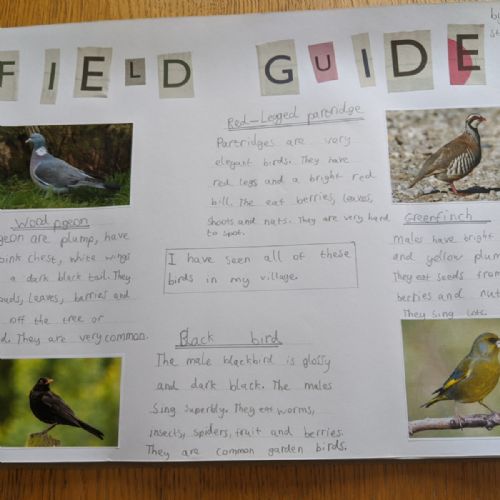 FIELD GUIDE
Red-Legged partridge
Partridges are very
elegant birds. They have
red legs and a bright red
bill. The eat berries, leaves,
shoots and nuts. They are very hard
to spot.
Wood pigeon
are plump, have
pink chest, white wings
a dark black tail. They
leaves, berries and
off the tree or
They are very common.
I have seen all of these
birds in my village.
Greenfinch
Males have bright
and yellow
They eat seeds from
berries and
They sing lots.
Black bird
The male blackbird is glossy
and dark black. The males
sing superbly. They eat worms,
insects, spiders, fruit and berries.
They are common garden birds.